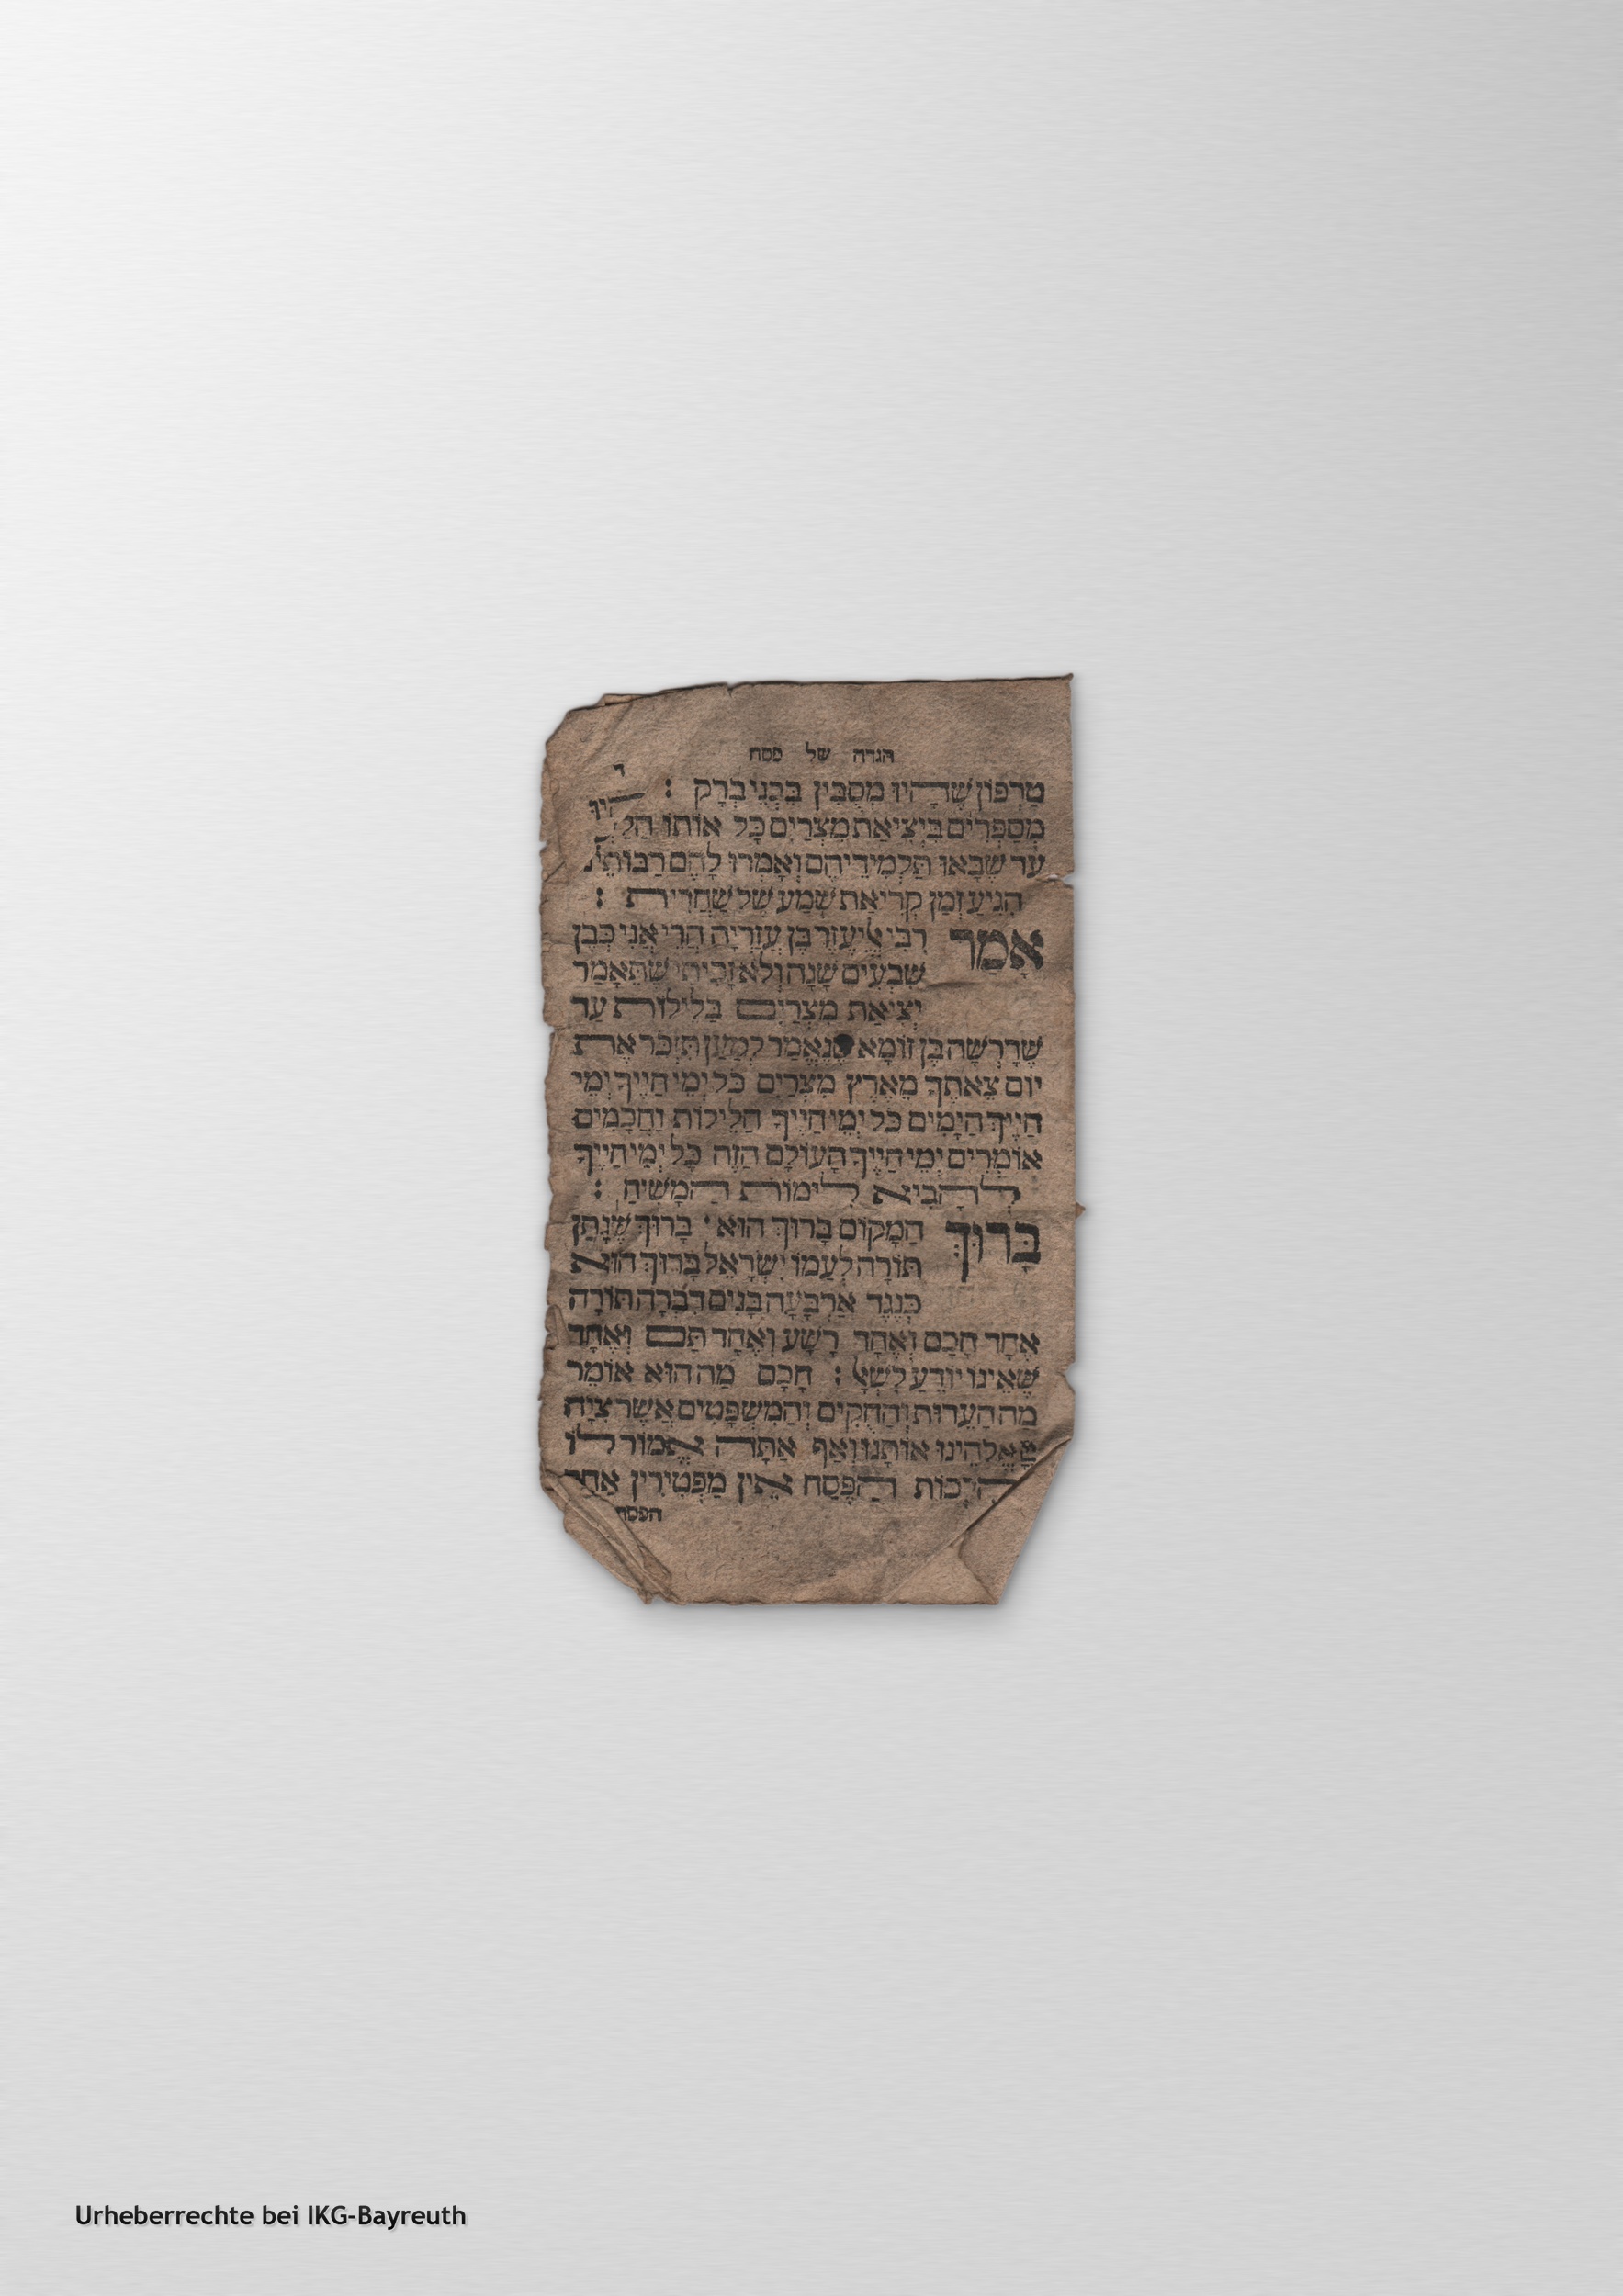 הגדה של פסח
ד
טַרְפוֹן שֶׁהָיוּ מְסֻבִּין בִּבְנֵי בְרַק : הָיוּ
מְסַפְּרִים בִּיצִיאַת מִצְרַיִם כָּל אוֹתוֹ
עַד שֶׁבָּאוּ תַלְמִידֵיהֶם וְאָמְרוּ לָהֶם
הִגִּיעַ זְמַן קְרִיאַת שְׁמַע שֶׁל שַׁחֲרִית :
אָמַר רַבִּי אֱלִיעֶזֶר בֶּן עֲזַרְיָה הֲרֵי אֲנִי כְּבֶן
שִׁבְעִים שָׁנָה וְלֹא זָכִיתִי שֶׁתֵּאָמֵר
יְצִיאַת מִצְרַיִם בַּלֵּילוֹת עַד
שֶׁדְּרָשָׁהּ בֶּן זוֹמָא שֶׁנֶּאֱמַר לְמַעַן תִּזְכֹּר אֶת
יוֹם צֵאתְךָ מֵאֶרֶץ מִצְרַיִם כֹּל יְמֵי חַיֶּיךָ יְמֵי
חַיֶּיךָ הַיָּמִים כֹּל יְמֵי חַיֶּיךָ הַלֵּילוֹת וַחֲכָמִים
אוֹמְרִים יְמֵי חַיֶּיךָ הָעוֹלָם הַזֶּה כָּל יְמֵי חַיֶּיךָ
לְהָבִיא לִימוֹת הַמָּשִׁיחַ :
בָּרוּךְ הַמָּקוֹם בָּרוּךְ הוּא׳ בָּרוּךְ שֶׁנָּתַן
תּוֹרָה לְעַמּוֹ יִשְׂרָאֵל בָּרוּךְ הוּא
כְּנֶגֶד אַרְבָּעָה בָנִים דִּבְּרָה תוֹרָה
אֶחָד חָכָם וְאֶחָד רָשָׁע וְאֶחָד תָּם וְאֶחָד
שֶׁאֵינוֹ יוֹדֵעַ לִשְׁאָל : חָכָם מַה הוּא אוֹמֵר
מָה הָעֵדוּת וְהַחֻקִּים וְהַמִּשְׁפָּטִים אֲשֶׁר צִוָּה
אֱלֹהֵינוּ אוֹתָנוּ וְאַף אַתָּה אֱמוֹר לוֹ
הַפֶּסַח אֵין מַפְטִירִין אַחַר
הפסח
Urheberrechte bei IKG-Bayreuth